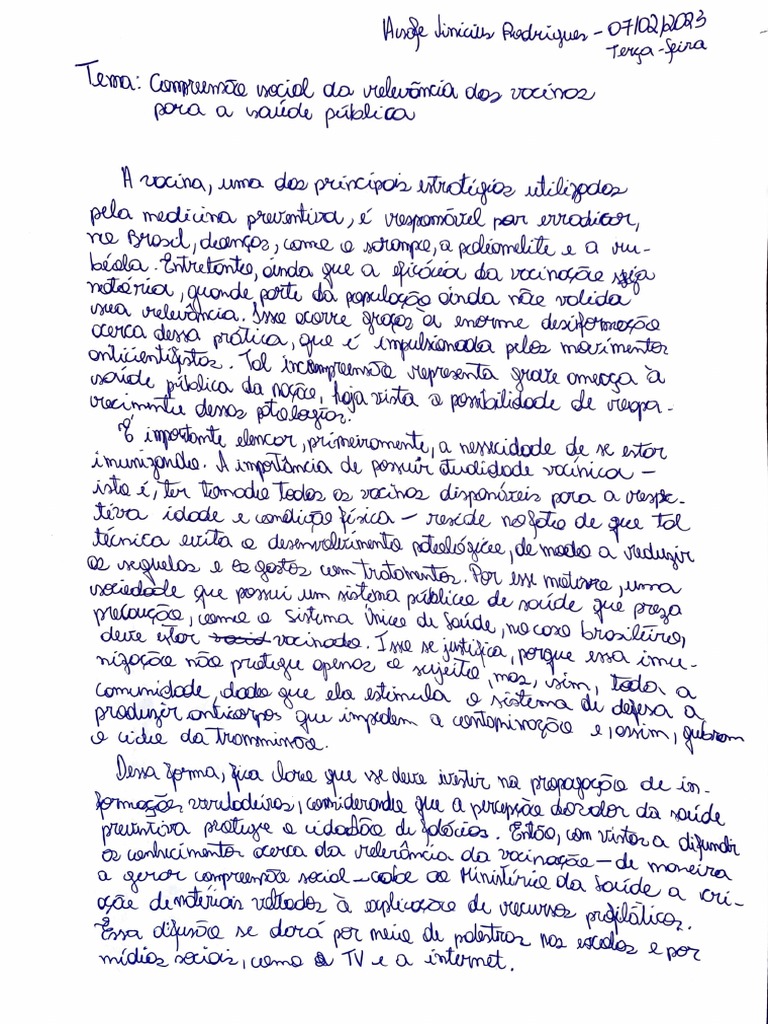 Vinicius Rodrigues - 07/02/2023
Terça-feira
Tema: Compreensão social da relevância das vacinas
para a saúde pública
A vacina, uma das principais estratégias utilizadas
pela medicina preventiva, é responsável por erradicar,
no Brasil, doenças, como o sarampo, a poliomelite e a ru-
béola. Entretanto, ainda que a eficácia da vacinação seja
notória, grande parte da população ainda não valida
sua relevância. Isso ocorre graças à enorme desinformação
acerca dessa prática, que é impulsionada pelos movimentos
anticientifistas. Tal incompreensão representa grave ameaça à
saúde pública da nação, haja vista a possibilidade de reapa-
recimento dessas patologias.
É importante elencar, primeiramente, a nessecidade de se estar
imunizando. A importância de possuir atualidade vacínica -
isto é, ter tomado todas as vacinas disponíveis para a respec-
tiva idade e condição física - reside no fato de que tal
técnica evita o desenvolvimento patológico, de modo a reduzir
as sequelas e os gastos com tratamentos. Por esse motivo, uma
sociedade que possui um sistema público de saúde que preza
precaução, como o Sistema Único de Saúde, no caso brasileiro,
deve estar vacinada. Isso se justifica, porque essa imu-
nização não protege apenas o sujeito, mas, sim, toda a
comunidade, dado que ela estimula o sistema de defesa a
produzir anticorpos que impedem a contaminação e, assim, quebram
o ciclo da transmissão.
Dessa forma, fica claro que se deve ivestir na propagação de in-
formações verdadeiras, considerando que a percepção da saúde
preventiva protege o cidadão de falácias. Então, com vistas a difundir
os conhecimentos acerca da relevância da vacinação - de maneira
a gerar compreensão social - cabe ao Ministério da Saúde a cri-
ação de materiais voltados à explicação de recursos profiláticos.
Essa difusão se dará por meio de palestras nas escolas e por
mídias sociais, como a TV e a internet.